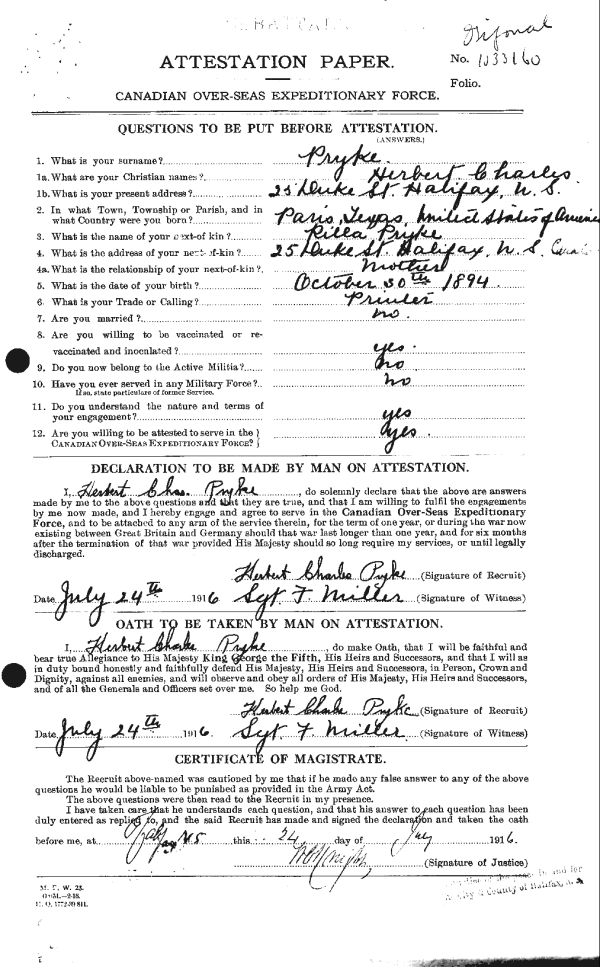 No. 1033160
ATTESTATION PAPER.
Folio.
CANADIAN OVER-SEAS EXPEDITIONARY FORCE.
QUESTIONS TO BE PUT BEFORE ATTESTATION.
(ANSWERS.)
1. What is your surname? Pryke.
1a. What are your Christian names? Herbert Charles
1b. What is your present address? 25 Duke St. Halifax, N.S.
2. In what Town, Township or Parish, and in
what Country were you born? Paris, Texas, United States of America
3. What is the name of your next-of kin? Rilla Pryke
4. What is the address of your next-of-kin? 25 Duke St. Halifax, N.S.
4a. What is the relationship of your next-of-kin? Mother
5. What is the date of your birth? October 30th 1894
6. What is your Trade or Calling? Printer
7. Are you married? no.
8. Are you willing to be vaccinated or re-
vaccinated and inoculated? yes.
9. Do you now belong to the Active Militia? no
10. Have you ever served in any Military Force? no
If so, state particulars of former Service.
11. Do you understand the nature and terms of
your engagement? yes
12. Are you willing to be attested to serve in the }
CANADIAN OVER-SEAS EXPEDITIONARY FORCE? } yes.
DECLARATION TO BE MADE BY MAN ON ATTESTATION.
I, Herbert Chas. Pryke, do solemnly declare that the above are answers
made by me to the above questions and that they are true, and that I am willing to fulfil the engagements
by me now made, and I hereby engage and agree to serve in the Canadian Over-Seas Expeditionary
Force, and to be attached to any arm of the service therein, for the term of one year, or during the war now
existing between Great Britain and Germany should that war last longer than one year, and for six months
after the termination of that war provided His Majesty should so long require my services, or until legally
discharged.
Herbert Charles Pryke (Signature of Recruit)
Date July 24th 1916 Sgt F Miller (Signature of Witness)
OATH TO BE TAKEN BY MAN ON ATTESTATION.
I, Herbert Charles Pryke, do make Oath, that I will be faithful and
bear true Allegiance to His Majesty King George the Fifth, His Heirs and Successors, and that I will as
in duty bound honestly and faithfully defend His Majesty, His Heirs and Successors, in Person, Crown and
Dignity, against all enemies, and will observe and obey all orders of His Majesty, His Heirs and Successors,
and of all the Generals and Officers set over me. So help me God.
Herbert Charles Pryke (Signature of Recruit)
Date July 24th 1916. Sgt F Miller (Signature of Witness)
CERTIFICATE OF MAGISTRATE.
The Recruit above-named was cautioned by me that if he made any false answer to any of the above
questions he would be liable to be punished as provided in the Army Act.
The above questions were then read to the Recruit in my presence.
I have taken care that he understands each question, and that his answer to each question has been
duly entered as replied to, and the said Recruit has made and signed the declaration and taken the oath
before me, at Halifax N.S this 24 day of July 1916.
(Signature of Justice)
M. F. W. 23.